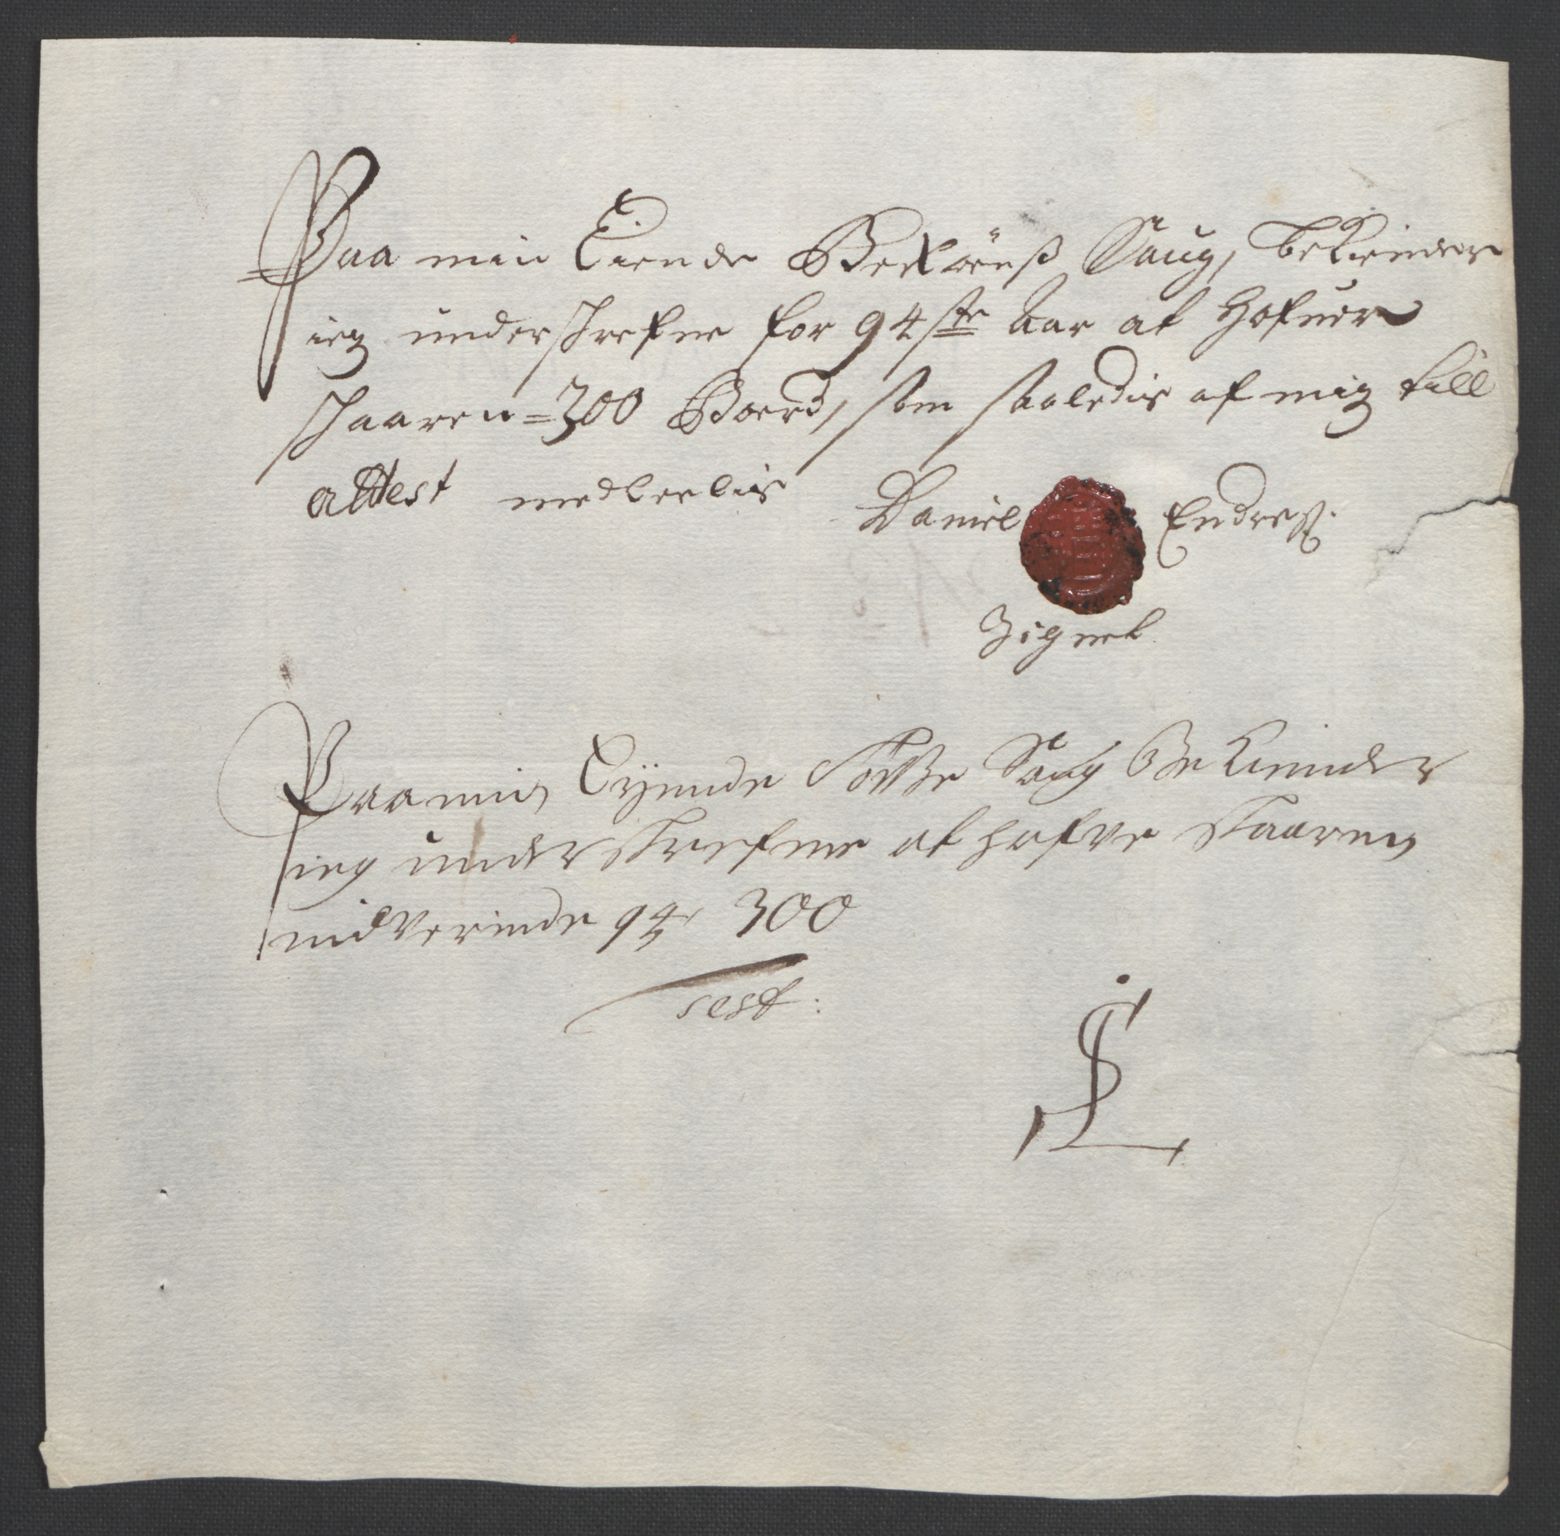 Paa min Eiende Beckørnß Saug, bekiender
ieg underskrefne for 94ste Aar at Hofuer
skaaren = 300 Boerd, som saaledis af mig till
attest meddeelis Daniel Endreß:
Zignet
Paa min Eyende Saug Be kiender
ieg under skrefne at hafve skaaren
udi verinde 94 300
Test:
SL